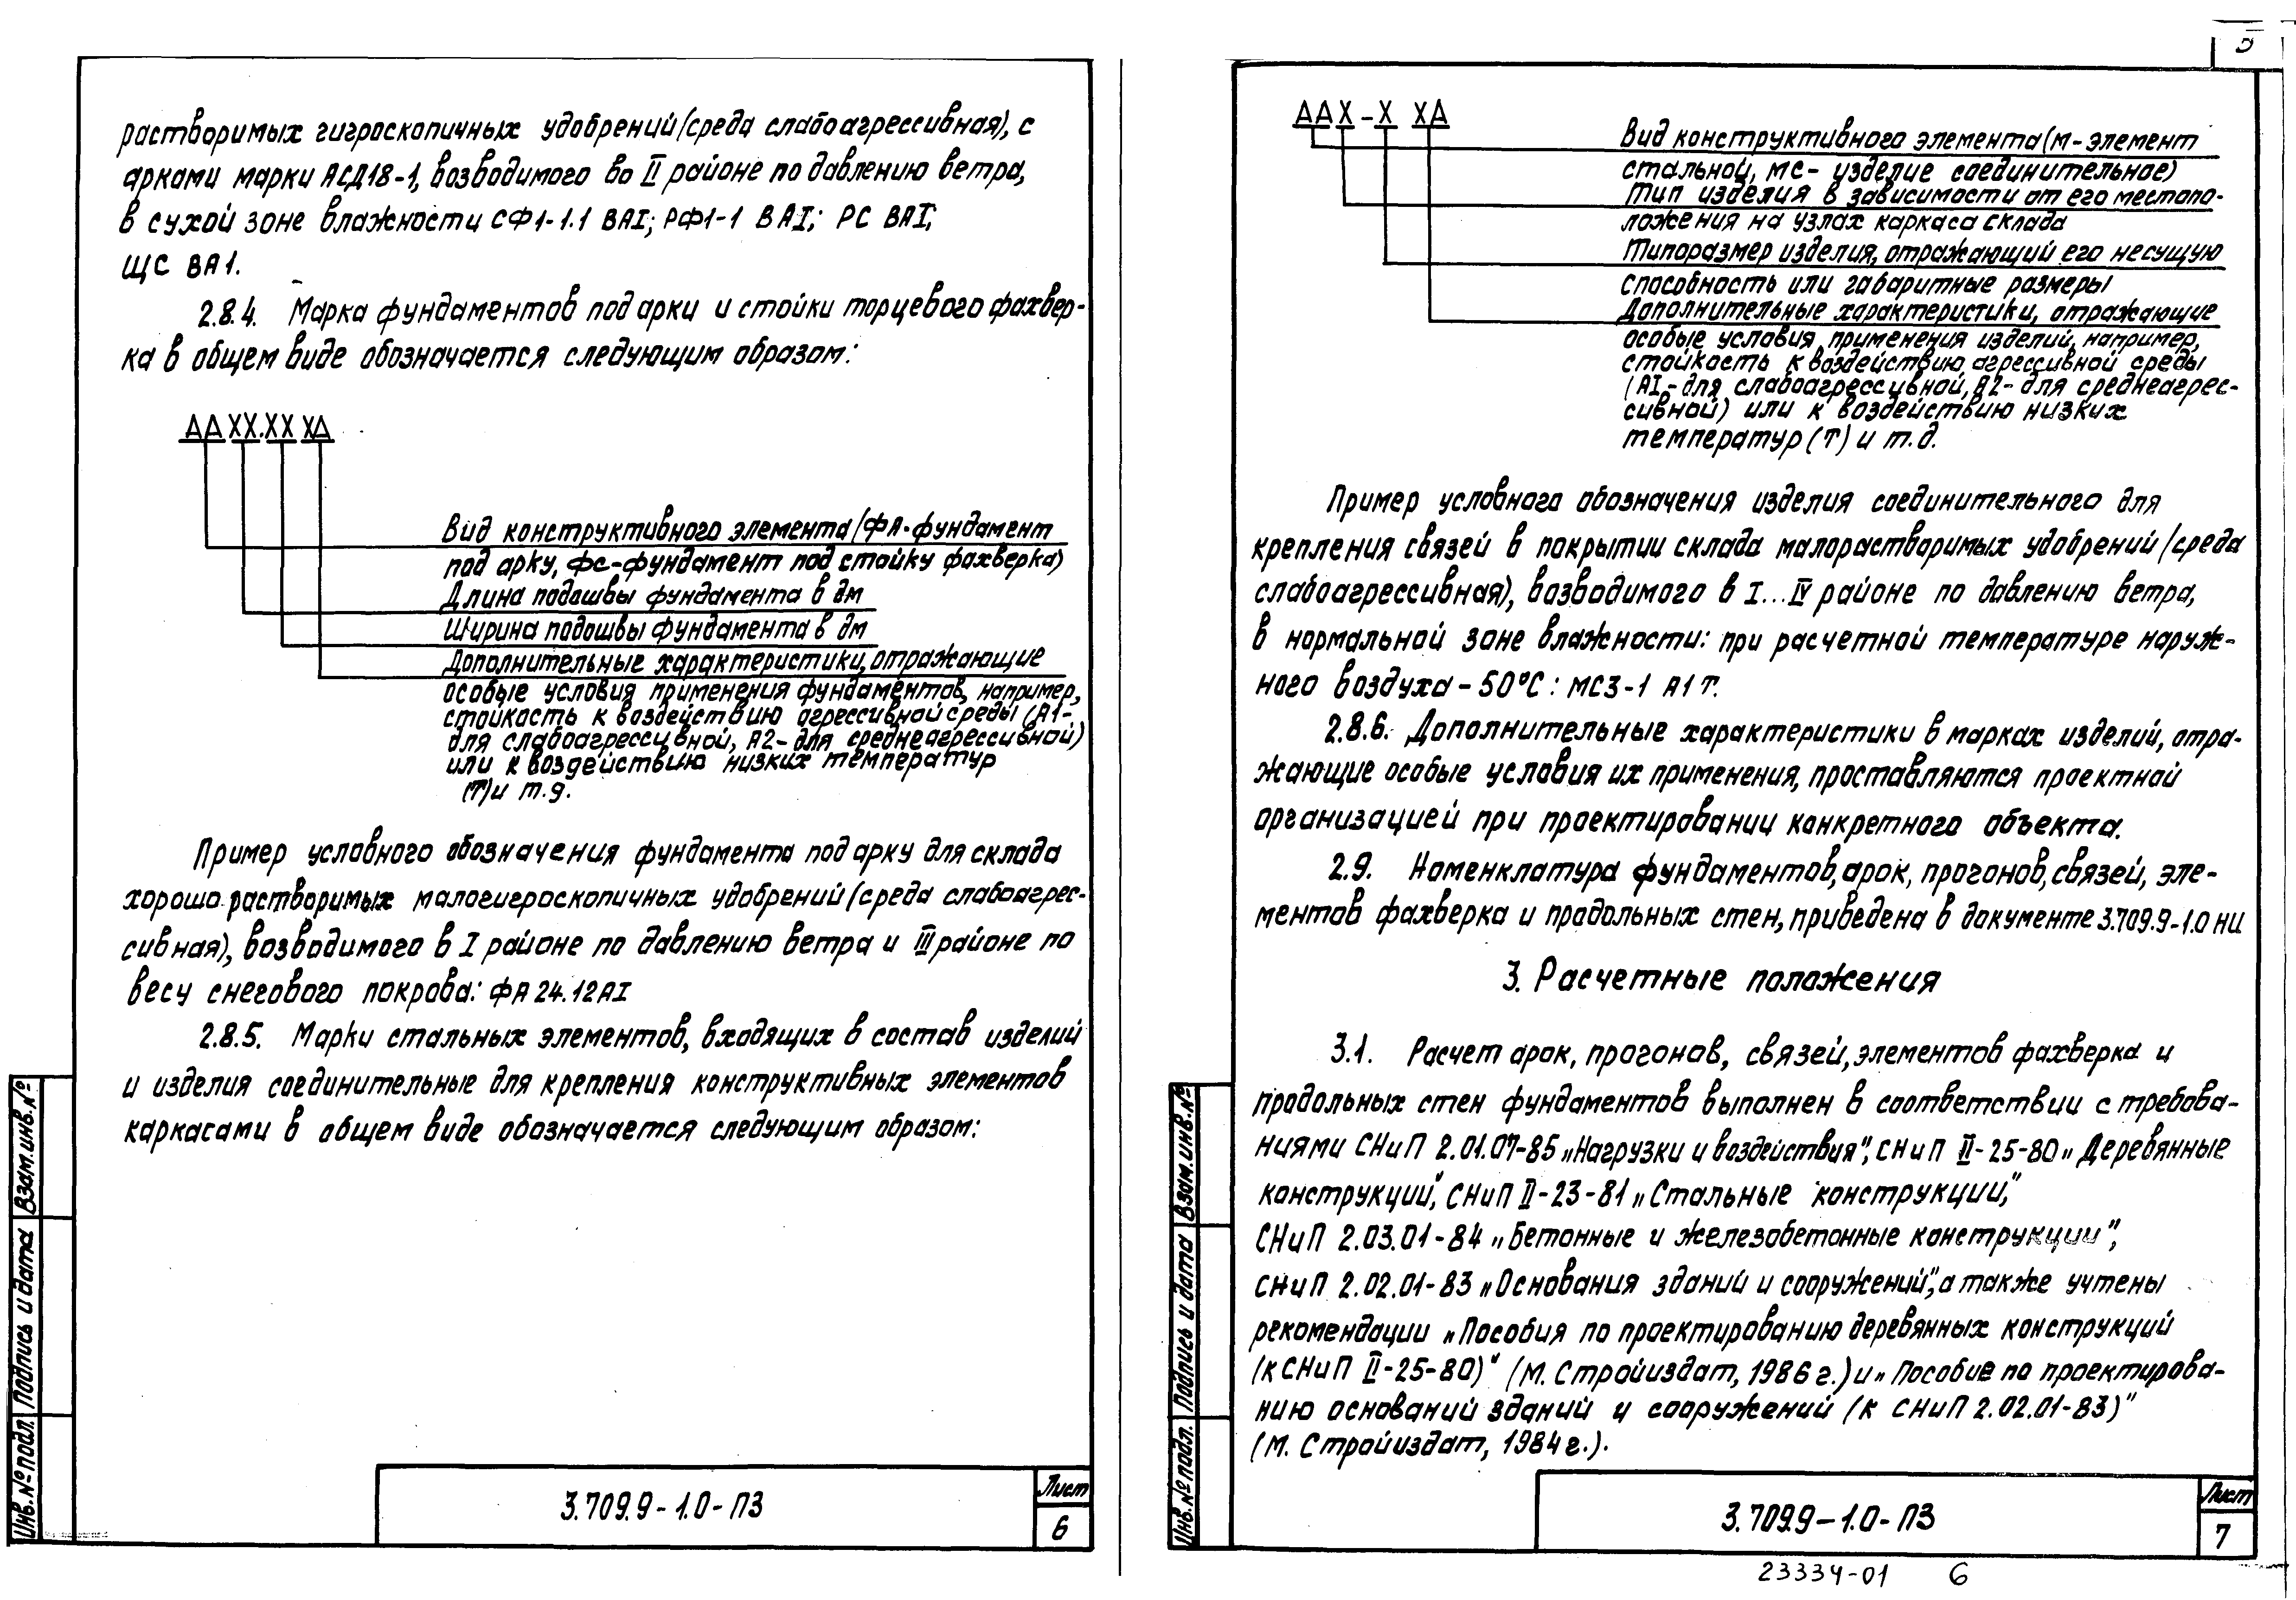 растворимых гигроскопичных удобрений (среда слабоагрессивная), с
арками марки АСД18-1, возводимого во II районе по давлению ветра,
в сухой зоне влажности СФ1-1.1 ВАI; РФ1-1 ВАI; РС ВАI;
ЩС ВА1.
2.8.4. Марка фундаментов под арки и стойки торцевого фахвер-
ка в общем виде обозначается следующим образом:
ДДХХ.ХХ ХД
Вид конструктивного элемента (ФА-фундамент
под арку, ФС-фундамент под стойку фахверка)
Длина подошвы фундамента в дм
Ширина подошвы фундамента в дм
Дополнительные характеристики, отражающие
особые условия применения фундаментов, например,
стойкость к воздействию агрессивной среды (А1-
для слабоагрессивной, А2- для среднеагрессивной)
или к воздействию низких температур
(Т) и т.д.
Пример условного обозначения фундамента под арку для склада
хорошо растворимых малогигроскопичных удобрений (среда слабоагрес-
сивная), возводимого в I районе по давлению ветра и III районе по
весу снегового покрова: ФА 24.12АI
2.8.5. Марки стальных элементов, входящих в состав изделий
и изделия соединительные для крепления конструктивных элементов
каркасами в общем виде обозначается следующим образом:
Инв.№ подл. Подпись и дата Взам.инв.№
3.709.9-1.0-ПЗ
Лист
6
5
ДДХ-Х ХД
Вид конструктивного элемента (М-элемент
стальной, МС- изделие соединительное)
Тип изделия в зависимости от его местопо-
ложения на узлах каркаса склада
Типоразмер изделия, отражающий его несущую
способность или габаритные размеры
Дополнительные характеристики, отражающие
особые условия применения изделий, например,
стойкость к воздействию агрессивной среды
(АI- для слабоагрессивной, А2- для среднеагрес-
сивной) или к воздействию низких
температур (Т) и т.д.
Пример условного обозначения изделия соединительного для
крепления связей в покрытии склада малорастворимых удобрений (среда
слабоагрессивная), возводимого в I...IV районе по давлению ветра,
в нормальной зоне влажности: при расчетной температуре наруж-
ного воздуха -50°С: МС3-1 А1Т.
2.8.6. Дополнительные характеристики в марках изделий, отра-
жающие особые условия их применения, проставляются проектной
организацией при проектировании конкретного объекта.
2.9. Номенклатура фундаментов, арок, прогонов, связей, эле-
ментов фахверка и продольных стен, приведена в документе 3.709.9-1.0 НИ
3. Расчетные положения
3.1. Расчет арок, прогонов, связей, элементов фахверка и
продольных стен фундаментов выполнен в соответствии с требова-
ниями СНиП 2.01.07-85 „Нагрузки и воздействия", СНиП II-25-80 „Деревянные
конструкции", СНиП II-23-81 „Стальные конструкции,"
СНиП 2.03.01-84 „Бетонные и железобетонные конструкции",
СНиП 2.02.01-83 „Основания зданий и сооружений", а также учтены
рекомендации „Пособия по проектированию деревянных конструкций
(к СНиП II-25-80)" (М. Стройиздат, 1986 г.) и „Пособие по проектирова-
нию оснований зданий и сооружений (к СНиП 2.02.01-83)"
(М. Стройиздат, 1984 г.).
Инв.№ подл. Подпись и дата Взам.инв.№
3.709.9-1.0-ПЗ
Лист
7
23334-01 6